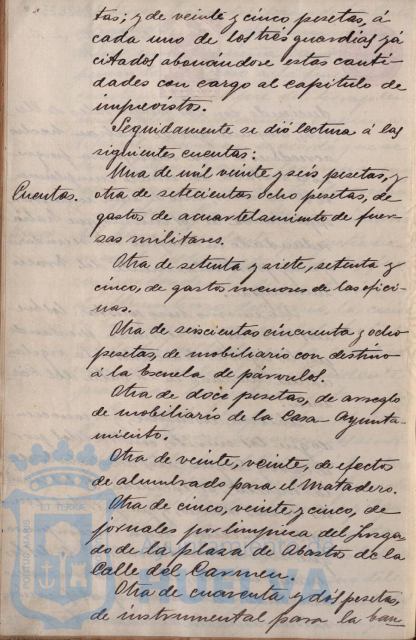 tas; y de veinte y cinco pesetas, á
cada uno de los tres guardias yá
citados abonándose estas canti-
dades con cargo al capítulo de
imprevistos.
Seguidamente se dió lectura á las
siguientes cuentas:
Cuentas.
Una de mil veinte y seis pesetas, y
otra de setecientas ocho pesetas, de
gastos de acuartelamiento de fuer-
sas militares.
Otra de setenta y siete, setenta y
cinco, de gastos menores de las ofici-
nas.
Otra de seiscientas cincuenta y ocho
pesetas, de mobiliario con destino
á la Escuela de párvulos.
Otra de doce pesetas, de arreglo
de mobiliario de la Casa Ayunta-
miento.
Otra de veinte, veinte, de efectos
de alumbrado para el Matadero.
Otra de cinco, veinte y cinco, de
jornales por limpieza del Juzga-
do de la plaza de Abastos de la
Calle del Carmen.
Otra de cuarenta y dos pesetas,
de instrumental para la ban
PORTUS MARIS
ET TERRAE
HUELVA